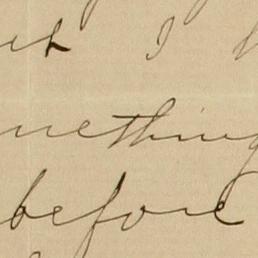 I
mething
before